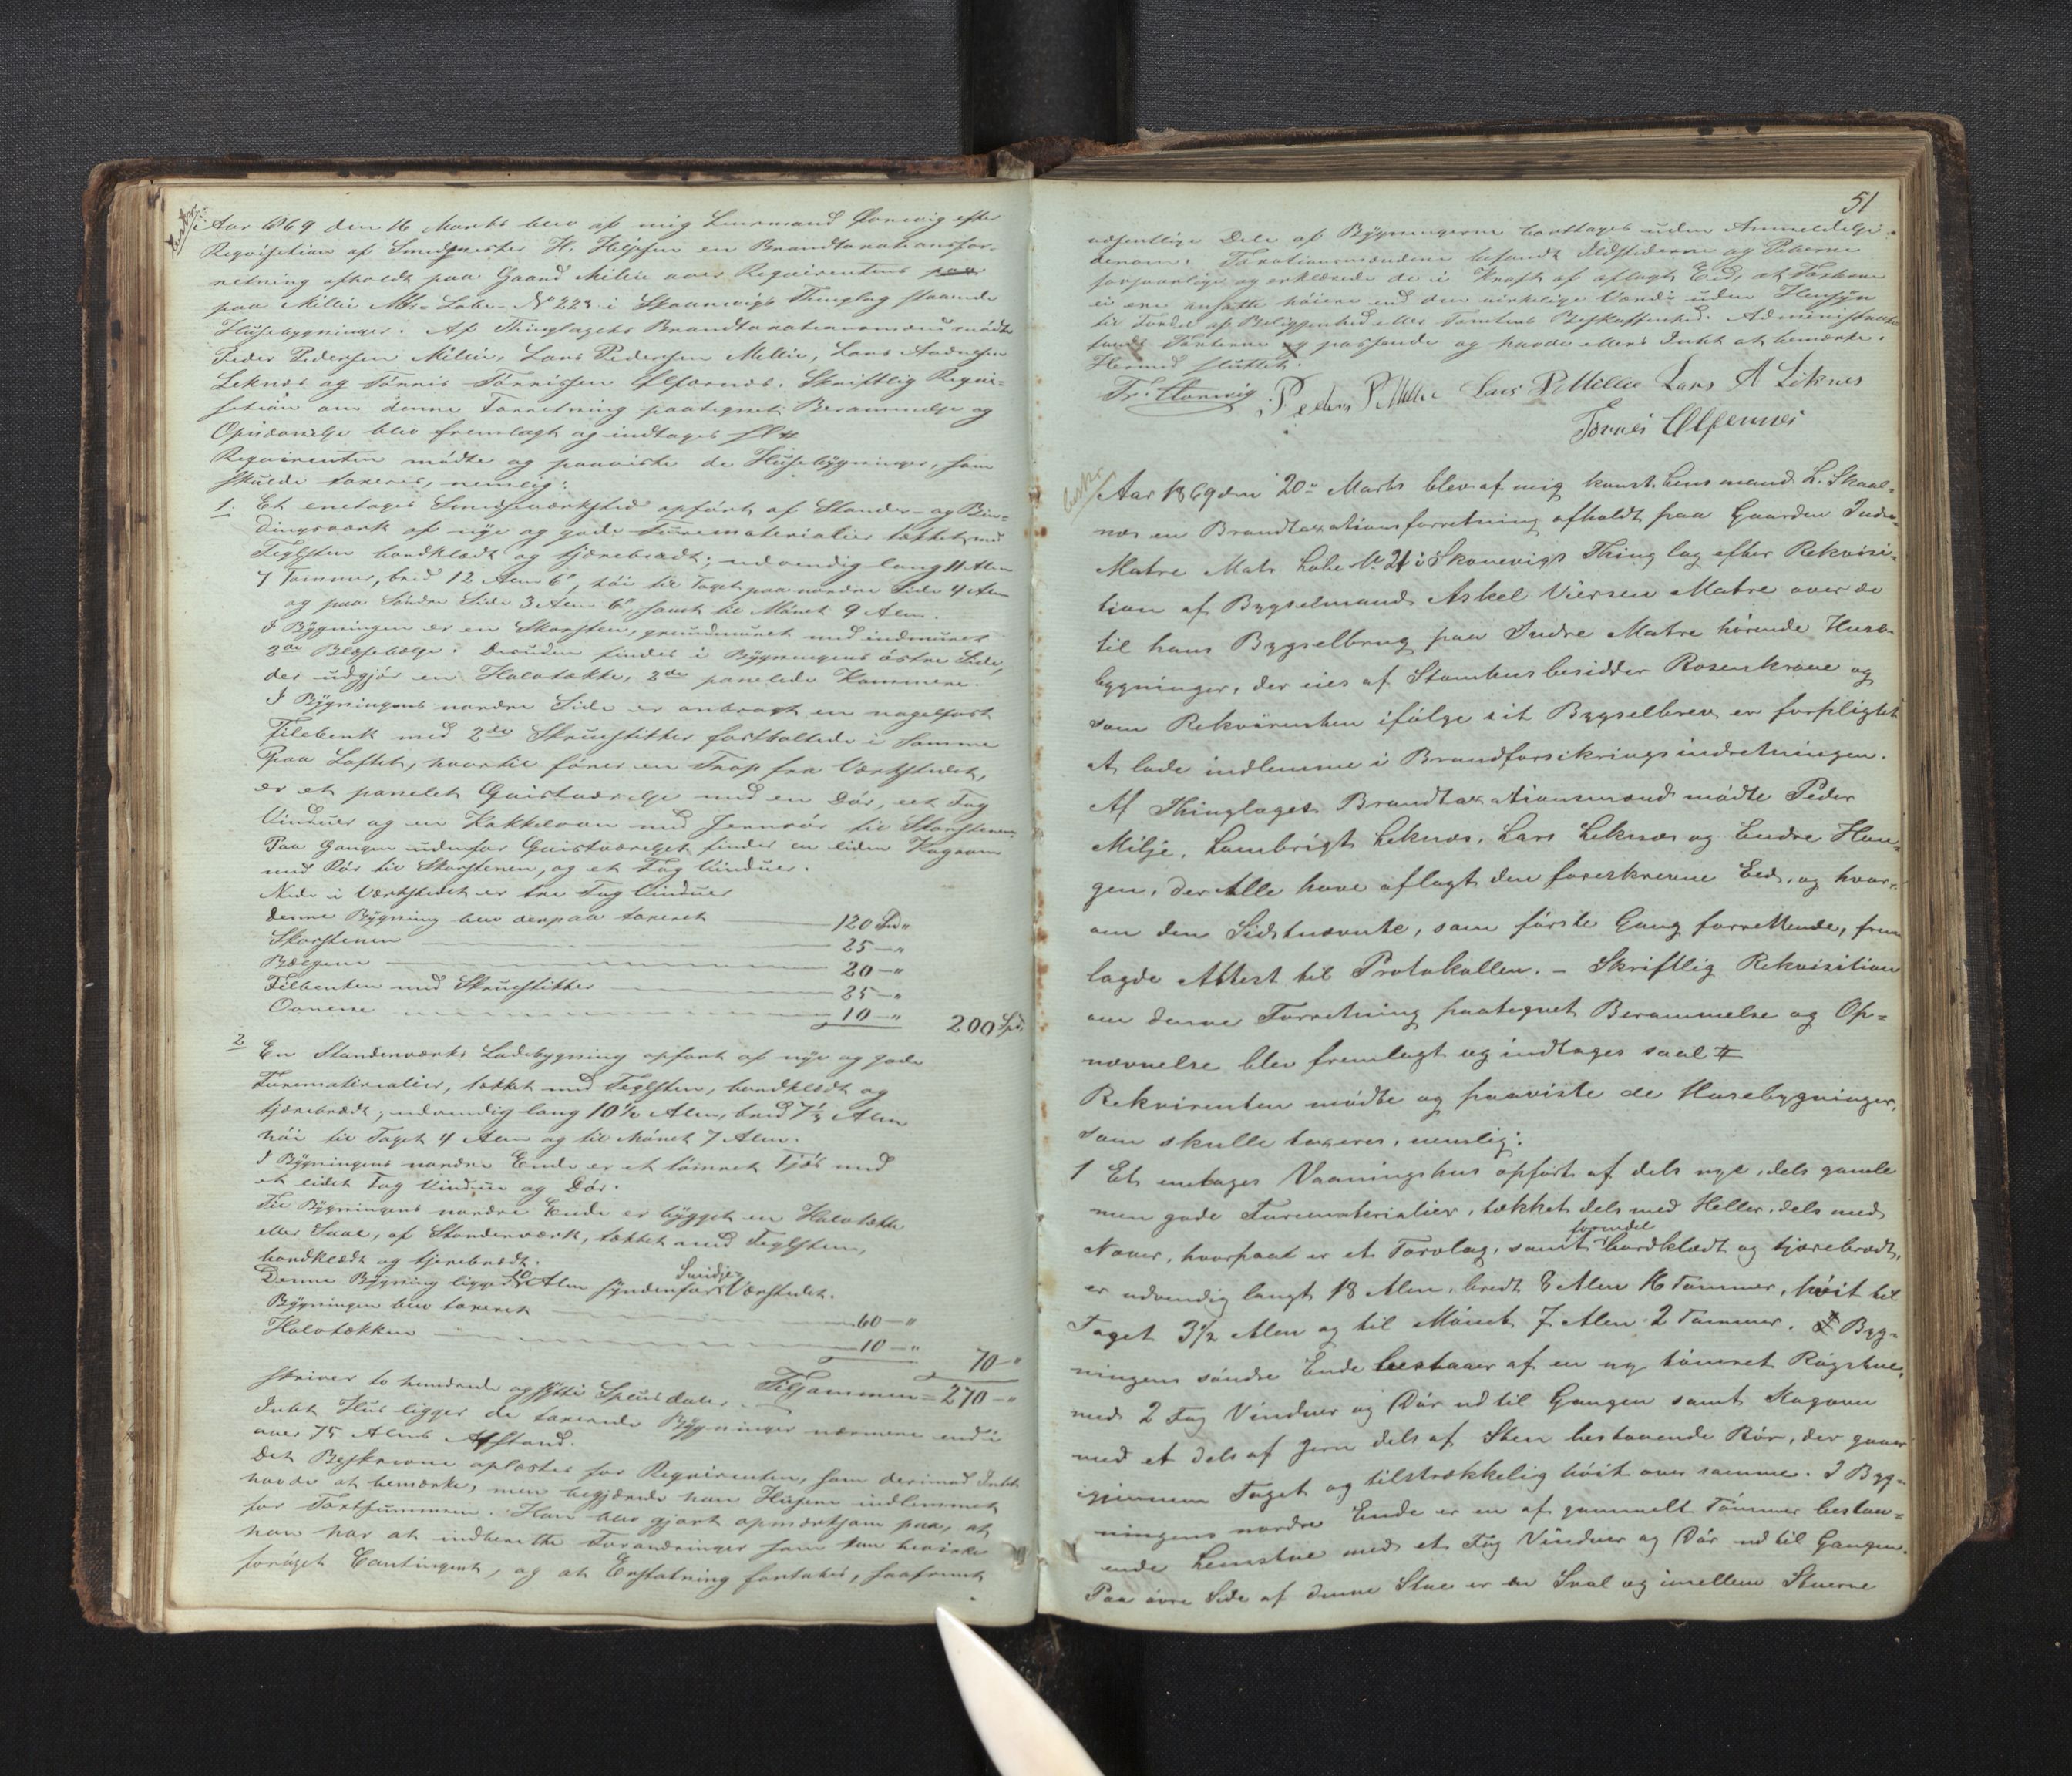 bestr.
Aar 1869 den 16 Marts blev af mig Lensmand Horwig efter
Reqvisition af Smedmester H. Heljesen en Brandtaxationsfor-
retning afholdt paa Gaard Millie over Reqvirentens paa
paa Millie Mtr: Løbe- No 223 i Skaanevigs Thinglag staaende
Husebygninger. Af Thinglagets Brandtaxationsmænd mødte
Peder Pedersen Millie, Lars Pedersen Millie, Lars Aadnesen
Leknæs og Tønnis Tønnissen Ølfærnæs. Skriftlig Reqvi-
sition om denne Forretning paategnet Berammelse og
Opnævnelse blev fremlagt og indtages sl #
Reqvirenten mødte og paaviste de Husebygninger, som
skulde taxeres, nemlig:
1. Et enetages Smedjeværksted opført af Stander- og Bin-
dingsværk af nye og gode Furematerialier tækket med
Teglsten bordklædt og tjærebrædt; udvendig lang 11 Alen
7 Tommer, bred 12 Alen 6", høi til Taget paa nordre Side 4 Alen
og paa søndre Side 3 Alen 6", samt til Mønet 9 Alen.
I Bygningen er en Skorsten, grundmuret med indmuret
2de Blæsebælge. Desuden findes i Bygningens østre Side,
der udgjør en Halvtække, 2de panelede Kammere.
I Bygningens nordre Side er anbragt en nagelfast
Filebenk med 2de Skruestikker fastboltede i Samme
Paa Loftet, hvortil fører en Trap fra Værkstedet,
er et panelet Qvistværelse med en Dør, eet Fag
Vinduer og en Kakkelovn med Jernrør til Skorstenen
Paa Gangen udenfor Qvistværelset findes en liden Kogeovn
med Rør til Skorstenen, og et Fag Vinduer.
Nede i Værkstedet er tre Fag Vinduer
Denne Bygning blev derpaa taxeret 120 Spd "
Skorstenen 25 — "
Bælgene 20 — "
Filbenken med Skruestikker 25 — "
Ovnene 10 — " 200 Spd.
2 En Standerværks Ladebygning opført af nye og gode
Furematerialier, tækket med Teglsten, bordklædt og
tjærebrædt; udvendig lang 10½ Alen, bred 7½ Alen
høi til Taget 4 Alen og til Mønet 7 Alen.
I Bygningens nordre Ende er et tømret Fjøs med
et lidet Fag Vindue og Dør.
Til Bygningens nordre Ende er bygget en Halvtække
eller Sval, af Standerværk, tækket med Teglsten,
bordklædt og tjerebrædt.
Denne Bygning ligger 10 Alen syndenfor Smidje Værkstedet.
Bygningen blev taxeret 60 — "
Halvtækken 10 — " 70 — "
Tilsammen = 270 — "
skriver to hundrede og sytti Speciedaler.
Intet Hus ligger de taxerede Bygninger nærmere end i
over 75 Alens Afstand.
Det Beskrevne oplæstes for Reqvirenten, som derimod Intet
havde at bemærke, men begjærede han Husene indlemmet
for Taxtsummen. Han blev gjort opmærksom paa, at
han har at indberette Forandringer som kan bevirke
forøget Contingent, og at Erstatning fortabes, saafremt
51
væsentlige Dele af Bygningerne borttages uden Anmeldelse
derom. Taxationsmændene befandt Ildstederne og Piberne
forsvarlige og erklærede de i Kraft af aflagt Eed, at Taxterne
ei ere ansatte høiere end den virkelige Værdi uden Hensyn
til Fordel af Beliggenhed eller Tomtens Beskaffenhed. Administrator
fandt Taxterne passende og havde ellers Intet at bemærke.
Hermed sluttet.
Fr. Horwig Peder P Millie Lars P Millie Lars A Liknes
Tønnes Ølfernes
bestr.
Aar 1869 den 20de Marts blev af mig konst. Lensmand L. Skaal-
næs en Brandtaxationsforretning afholdt paa Gaarden Indre
Matre Matr. Løbe No 21 i Skonevigs Thinglag efter Rekvisi-
tion af Bygselmand Askel Viersen Matre over de
til hans Bygselbrug paa Indre Matre hørende Huse-
bygninger, der eies af Stamhusbesidder Rosenkrone og
som Rekvirenten ifølge sit Bygselbrev er forpligtet
at lade indlemme i Brandforsikringsindretningen.
Af Thinglagets Brandtaxationsmænd mødte Peder
Milje, Lambrigt Leknæs, Lars Leknæs og Endre Hau-
gen, der Alle have aflagt den foreskrevne Eed, og hvor-
om den Sidstnævnte, som første Gang forrettende, frem
lagde Attest til Protokollen. – Skriftlig Rekvisition
om denne Forretning paategnet Berammelse og Op-
nævnelse blev fremlagt og indtages saal #
Rekvirenten mødte og paaviste de Husebygninger,
som skulle taxeres, nemlig:
1 Et enetages Vaaningshus opført af dels nye, dels gamle
men gode Furematerialier, tækket dels med Heller, dels med
Næver, hvorpaa er et Torvlag, samt forendel bordklædt og tjærebrædt,
er udvendig langt 18 Alen, bredt 8 Alen 16 Tommer, høit til
Taget 3½ Alen og til Mønet 7 Alen 2 Tommer. I Byg-
ningens søndre Ende bestaaer af en ny tømret Røgstue,
med 2 Fag Vinduer og Dør ud til Gangen samt Kogeovn
med et dels af Jern dels af Sten bestaaende Rør, der gaaer
igjennem Taget og tilstrækkelig høit over samme. I Byg-
ningens nordre Ende er en af gammelt Tømmer bestaa-
ende Lemstue med et Fag Vinduer og Dør ud til Gangen.
Paa øvre Side af denne Stue er en Sval og imellem Stuerne